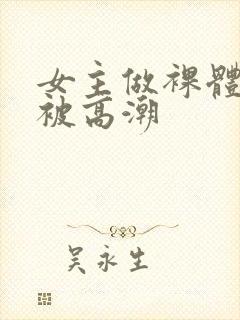 女主做裸體
被高潮
吴永生